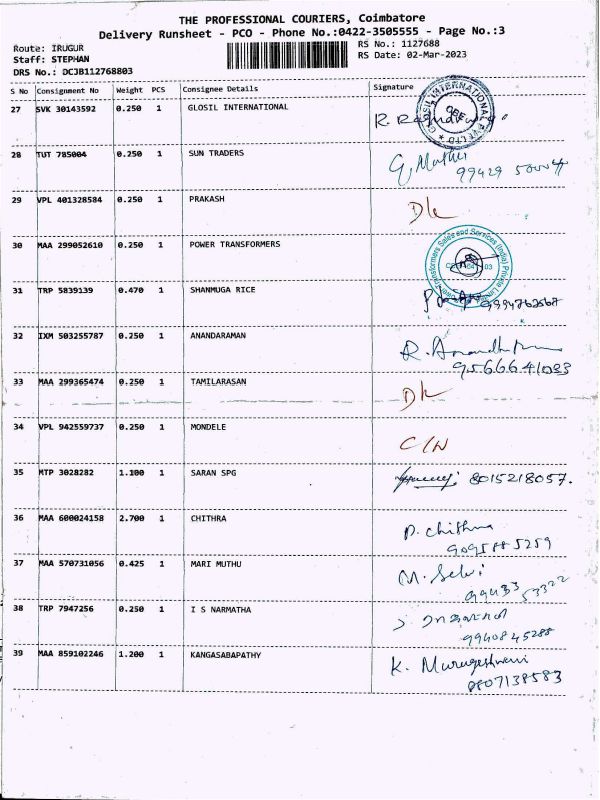 THE PROFESSIONAL COURIERS, Coimbatore
Delivery Runsheet - PCO - Phone No.:0422-3505555 - Page No.:3
Route: IRUGUR
Staff: STEPHAN
DRS No.: DCJB112768803
RS No.: 1127688
RS Date: 02-Mar-2023
S No Consignment No Weight PCS Consignee Details Signature
27 SVK 30143592 0.250 1 GLOSIL INTERNATIONAL
GLOSIL INTERNATIONAL PVT LTD CBE
28 TUT 785004 0.250 1 SUN TRADERS
29 VPL 401328584 0.250 1 PRAKASH DL
30 MAA 299052610 0.250 1 POWER TRANSFORMERS
Transformers Sales and Services (India) Private
31 TRP 5839139 0.470 1 SHANMUGA RICE 9994762567
32 IXM 503255787 0.250 1 ANANDARAMAN
9566641083
33 MAA 299365474 0.250 1 TAMILARASAN DL
34 VPL 942559737 0.250 1 MONDELE C/N
35 MTP 3028282 1.100 1 SARAN SPG 8015218057.
36 MAA 600024158 2.700 1 CHITHRA P. Chithra
9095885259
37 MAA 570731056 0.425 1 MARI MUTHU M. Selvi
99433 53322
38 TRP 7947256 0.250 1 I S NARMATHA
9940845288
39 MAA 859102246 1.200 1 KANGASABAPATHY K. Murugeshwari
9807138583